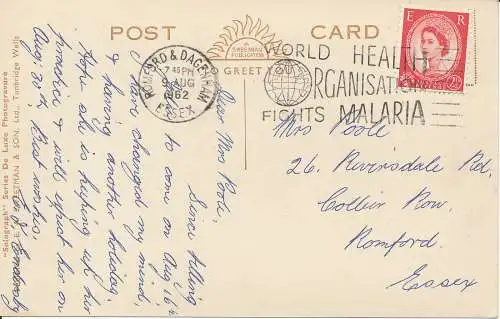 POST CARD
A SWEETMAN
PUBLICATION
GREETINGS
ROMFORD & DAGENHAM
7.45 PM
9 AUG
1962
ESSEX
WORLD HEALTH
ORGANISATION
FIGHTS MALARIA
E R
2½D
"Solograph" Series De Luxe Photogravure
E. SWEETMAN & SON, Ltd., Tunbridge Wells
Dear Mrs Poole,
Since telling
to come on Aug 16th
I have changed my mind,
& having another holiday.
Hope she is keeping up her
practice & will expect her on
Aug. 30th. Best wishes,
Mrs Poole
26. Riversdale Rd,
Collier Row.
Romford.
Essex